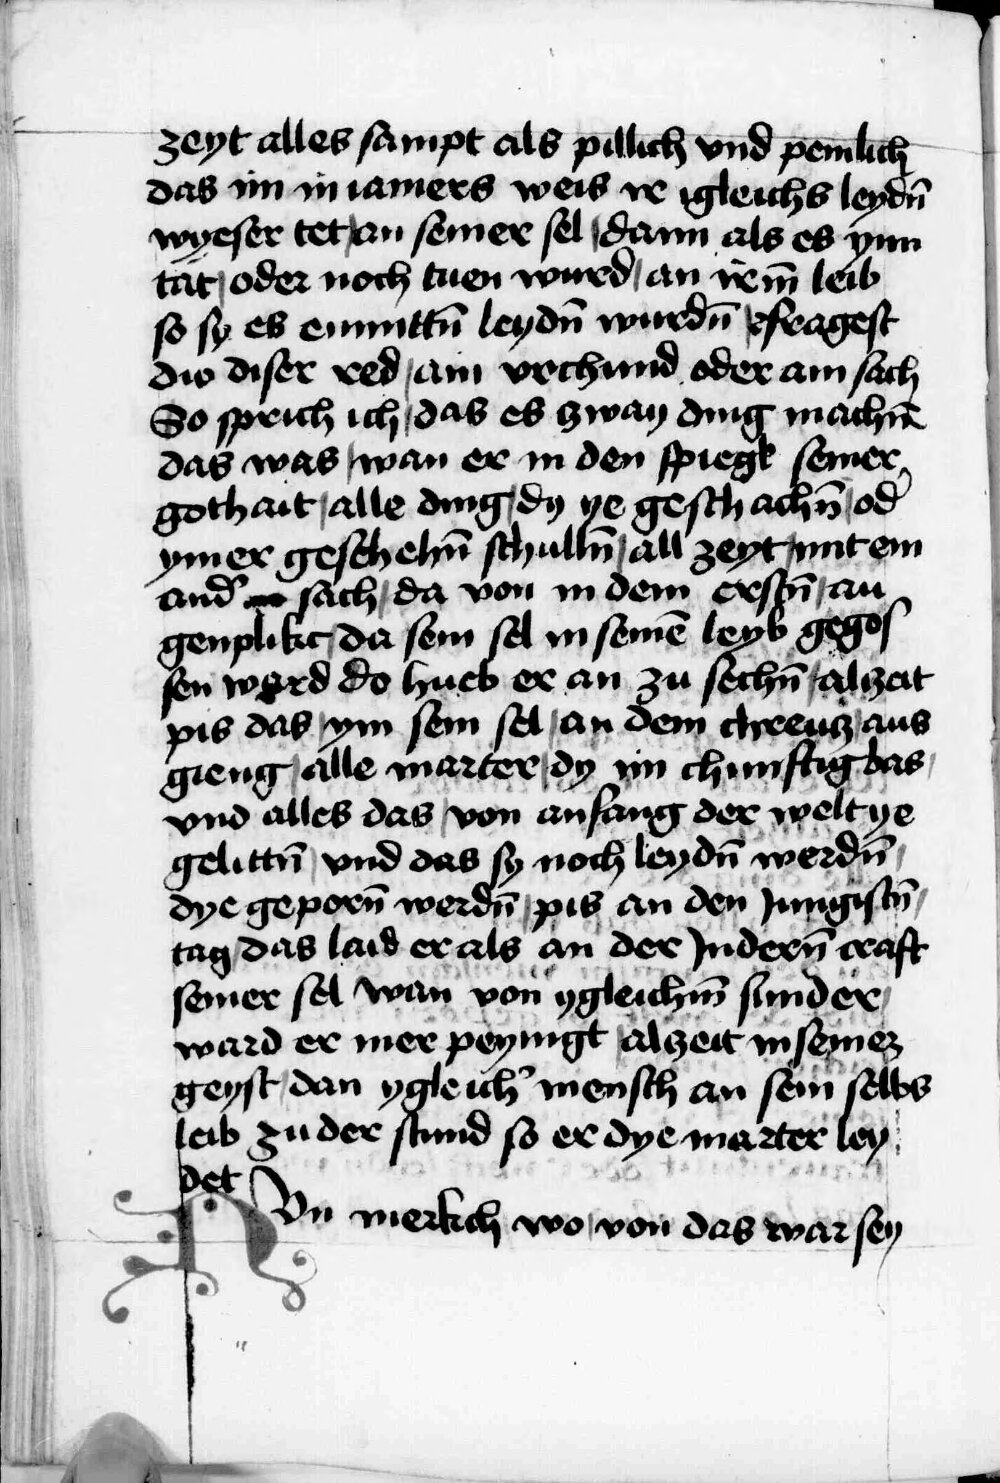 zeyt alles sampt als pillich vnd peinlich
das im in iamers weis ir igleichs leydn̄
wyeser tet an seiner sel dann als es ynn
tat oder noch tuen wurd an irem̄ leib
so sy es enmittn̄ leydn̄ wurdn̄ fragest
diw diser red ain vrchund oder ain sach
So sprich ich das es zway ding machn̄
das was wan er in den spiegl seiner
gothait alle ding dy ye geschachn̄ od̓
ymer geschehn̄ schulln̄ all zeyt mit ein
and̓ sach da von in dem erstn̄ au
genplikt da sein sel in seinē leyb gegos
sen ward do hueb er an zu sechn̄ alzeit
pis das ym sein sel an dem chreutz aus
gieng alle marter dy im chunftig bas
vnd alles das von anfang der welt ye
gelittn̄ vnd das sy noch leydn̄ werdn̄
dye geporn̄ werdn̄ pis an den Jungistn̄
tag das laid er als an der Jndern̄ craft
seiner sel wan von ygleichm̄ sunder
ward er mer peynigt alzeit in seinez
geyst dan ygleich̓ mensch an sein selbs
leib zu der stund so er dye marter ley
det
Nvn merkch wo von das war sey